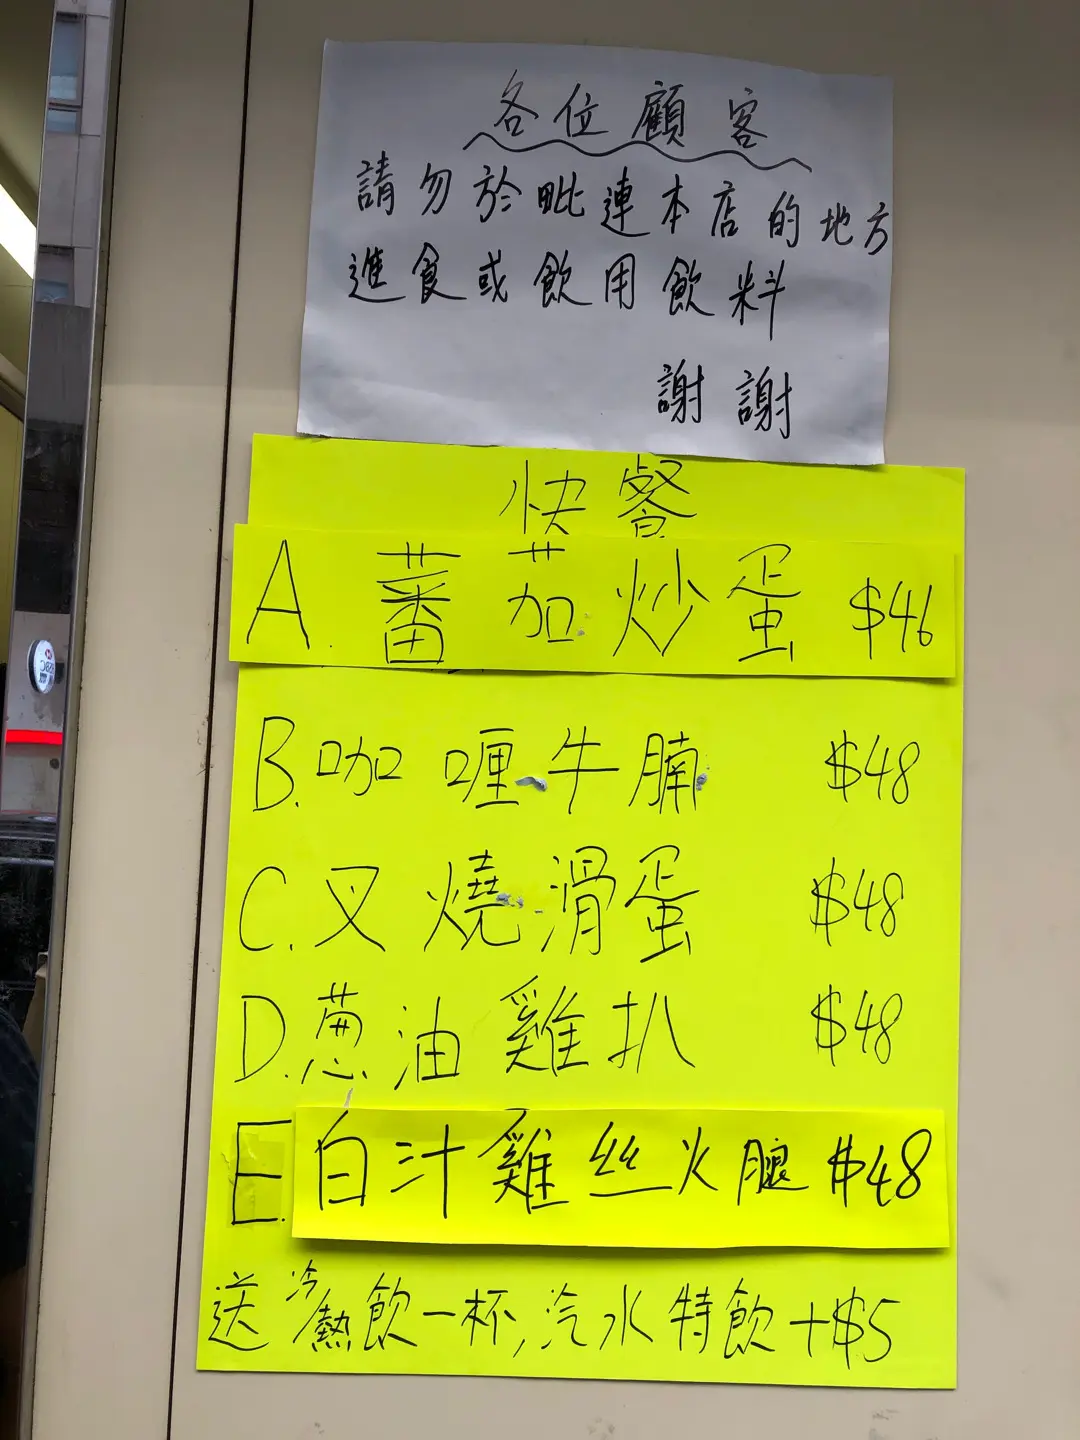 各位顧客
請勿於毗連本店的地方
進食或飲用飲料
謝謝
快餐
A.蕃茄炒蛋 $46
B.咖喱牛腩 $48
C.叉燒滑蛋 $48
D.蔥油雞扒 $48
E.白汁雞絲火腿 $48
送冷熱飲一杯,汽水特飲+$5